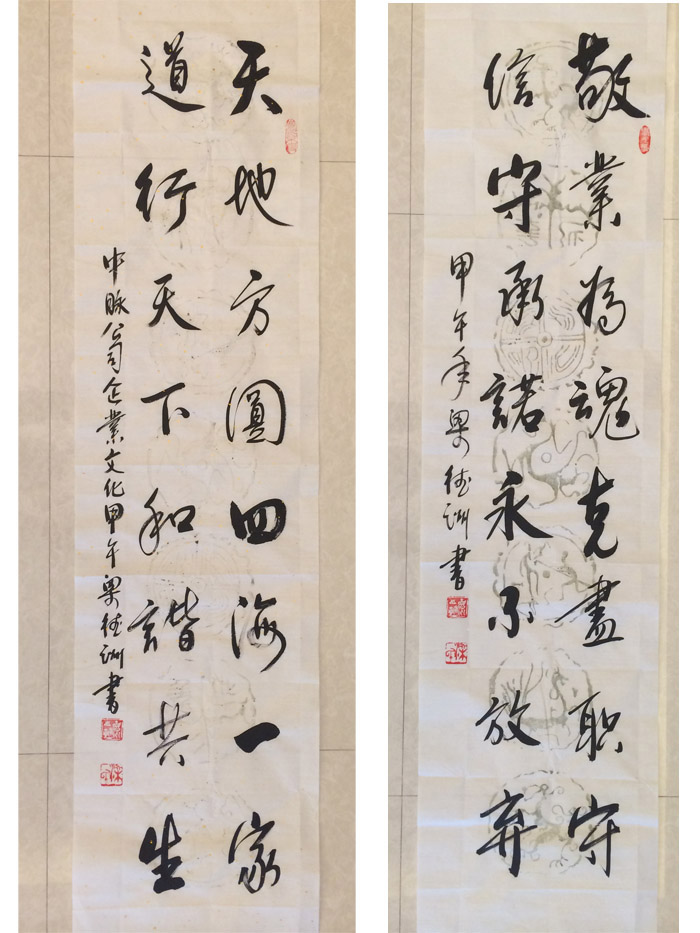 敬業為魂克盡職守
信守承諾永不放弃
甲午年梁德訓書
天地方圓四海一家
道行天下和諧共生
中脉公司企業文化甲午梁德訓書